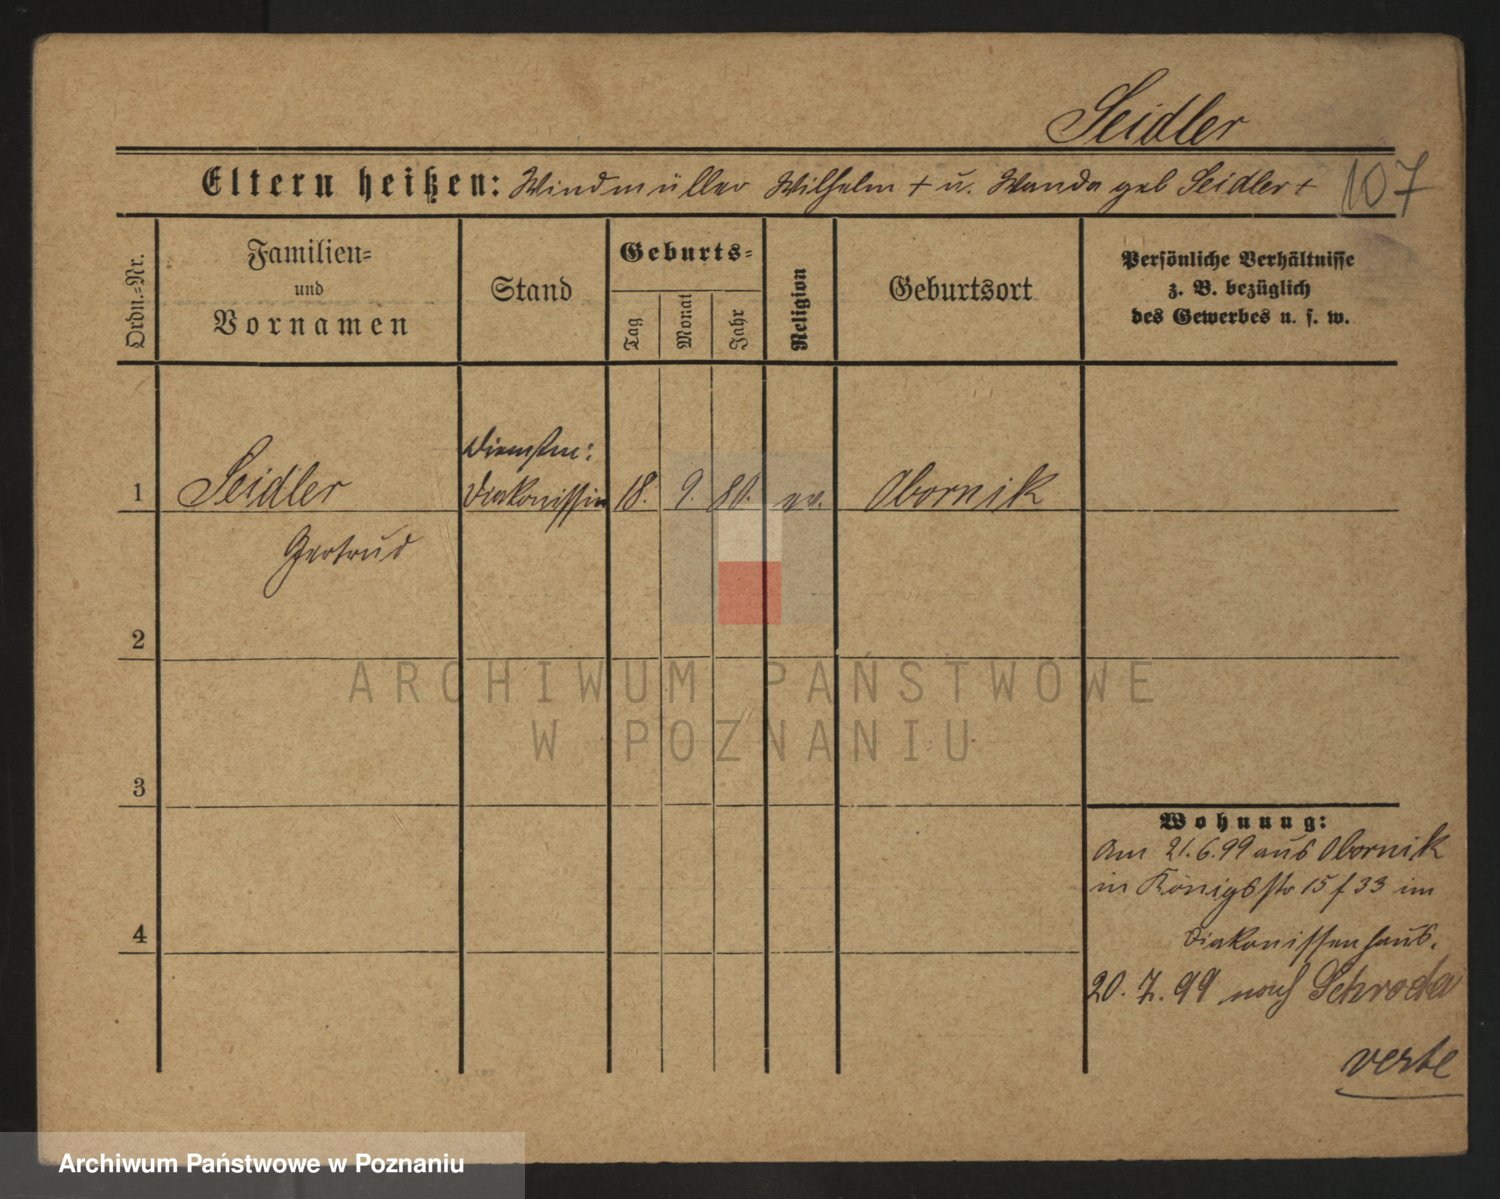 Seidler
Eltern heißen: Windmüller Wilhelm + u. Wanda geb Seidler +
107
Ordn.-Nr.
Familien-
und
Vornamen
Stand
Geburts-
Tag
Monat
Jahr
Religion
Geburtsort
Persönliche Verhältnisse
z. B. bezüglich
des Gewerbes u. s. w.
1
Seidler
Gertrud
Diakonissin
18.
9.
80.
ev.
Obornik
2
3
4
Wohnung:
Am 21.6.99 aus Obornik
in Königsstr 15 f 33 im
Diakonissenhaus.
20. 7. 99 nach Schroda
verte
ARCHIWUM PAŃSTWOWE
W POZNANIU
Archiwum Państwowe w Poznaniu